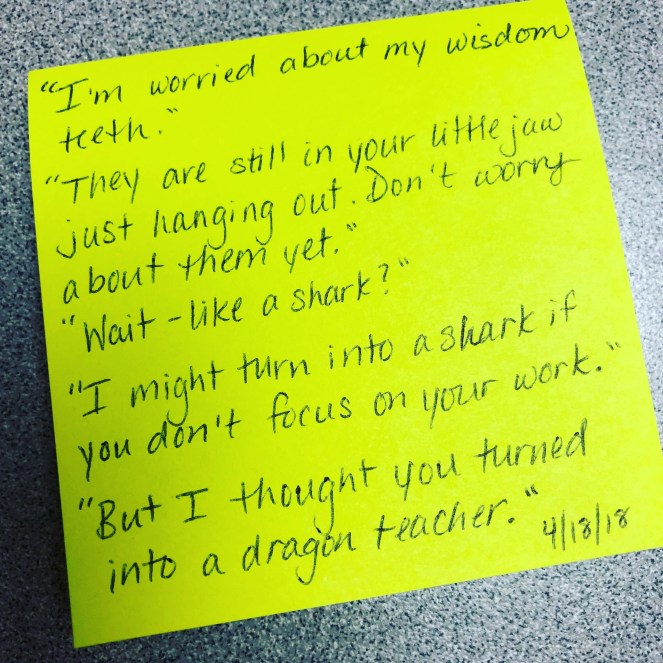 "I'm worried about my wisdom
teeth."
"They are still in your little jaw
just hanging out. Don't worry
about them yet."
"Wait - like a shark?"
"I might turn into a shark if
you don't focus on your work."
"But I thought you turned
into a dragon teacher."
4/18/18